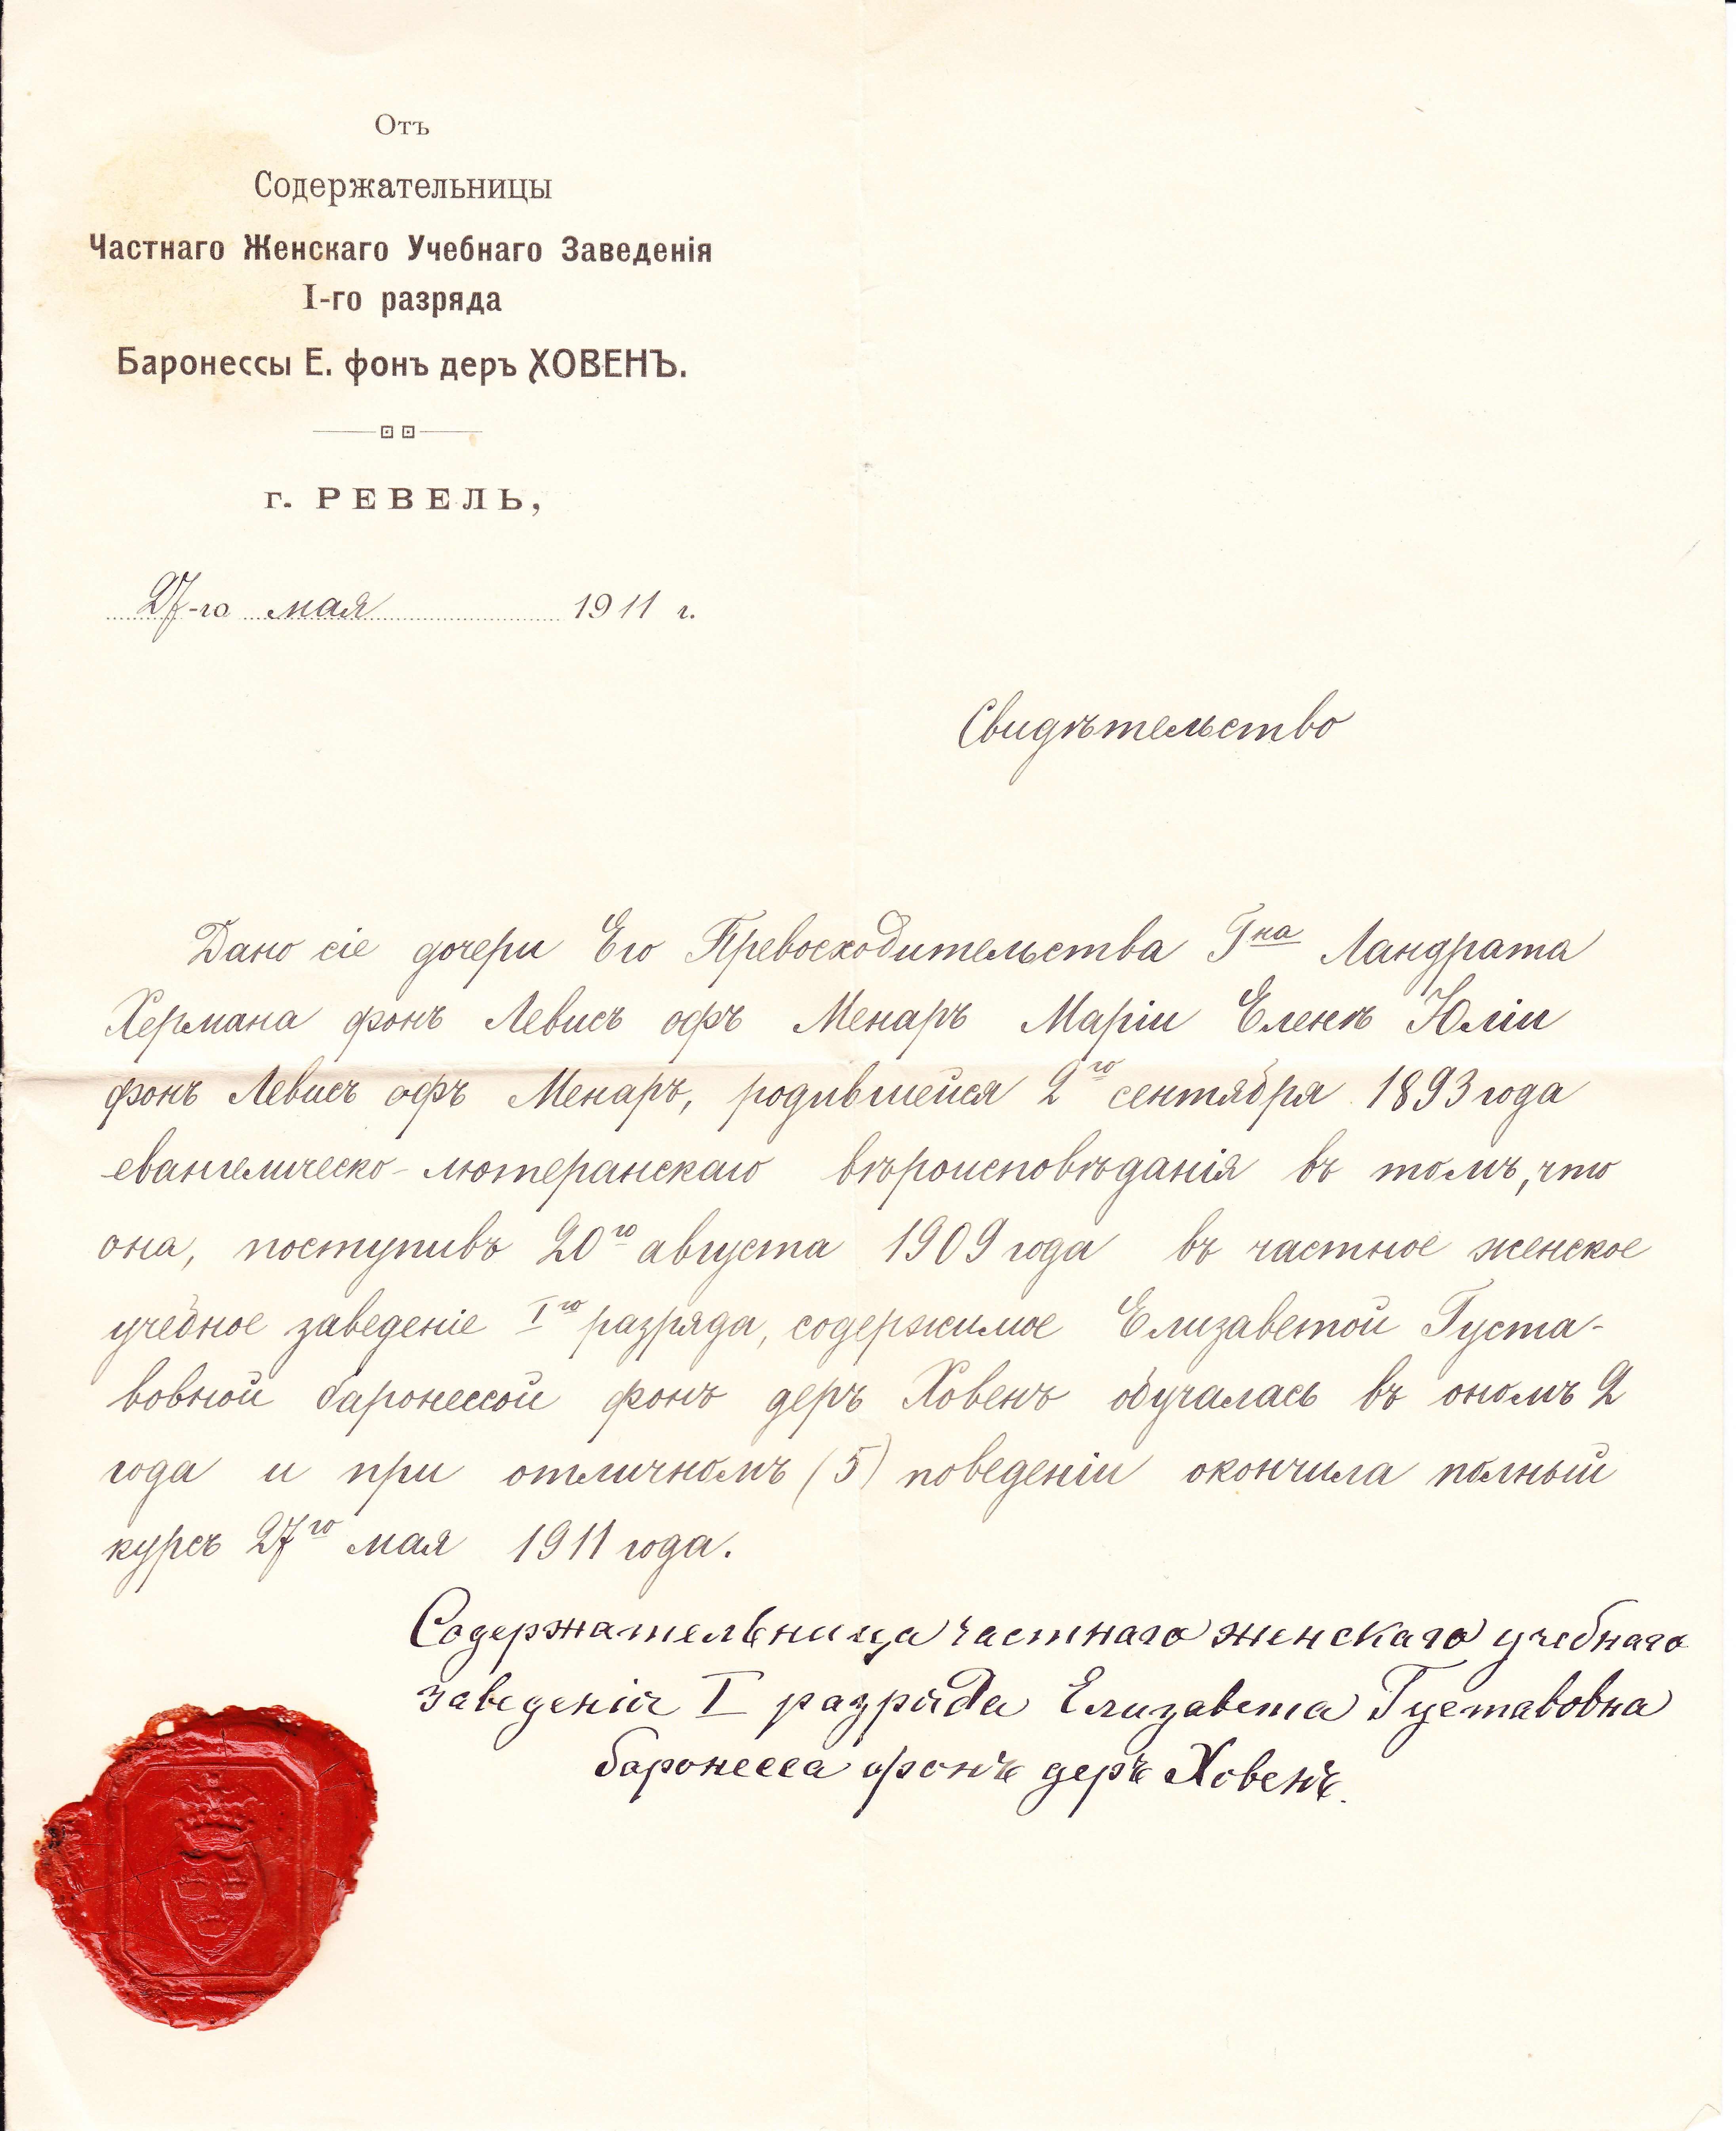 Отъ
Содержательницы
Частнаго Женскаго Учебнаго Заведенія
I-го разряда
Баронессы Е. фонъ деръ ХОВЕНЪ.
г. РЕВЕЛЬ,
27-го мая 1911 г.
Свидѣтельство
Дано сіе дочери Его Превосходительства Гна Ландрата
Хермана фонъ Левисъ офъ Менаръ Маріи Еленѣ Юліи
фонъ Левисъ офъ Менаръ, родившейся 2го сентября 1893 года
евангелическо-лютеранскаго вѣроисповѣданія въ томъ, что
она, поступивъ 20го августа 1909 года въ частное женское
учебное заведеніе Iго разряда, содержимое Елизаветой Густа-
вовной баронессой фонъ деръ Ховенъ обучалась въ ономъ 2
года и при отличномъ (5) поведеніи окончила полный
курсъ 27го мая 1911 года.
Содержательница частнаго женскаго учебнаго
заведенія I разряда Елизавета Густавовна
баронесса фонъ деръ Ховенъ.